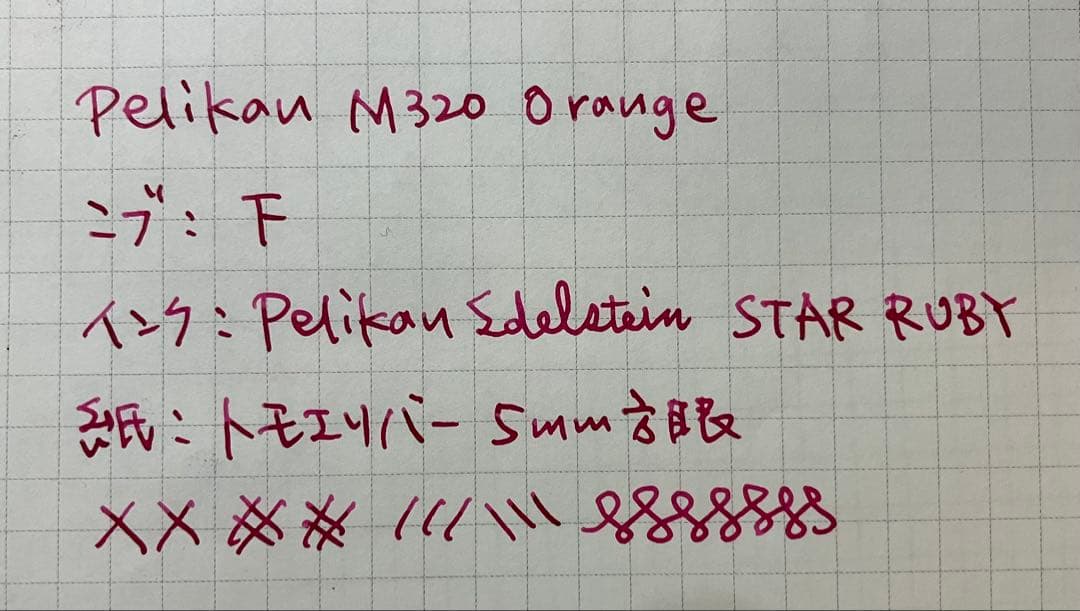 Pelikan M320 Orange
ニブ: F
インク: Pelikan Edelstein STAR RUBY
紙: トモエリバー 5mm方眼